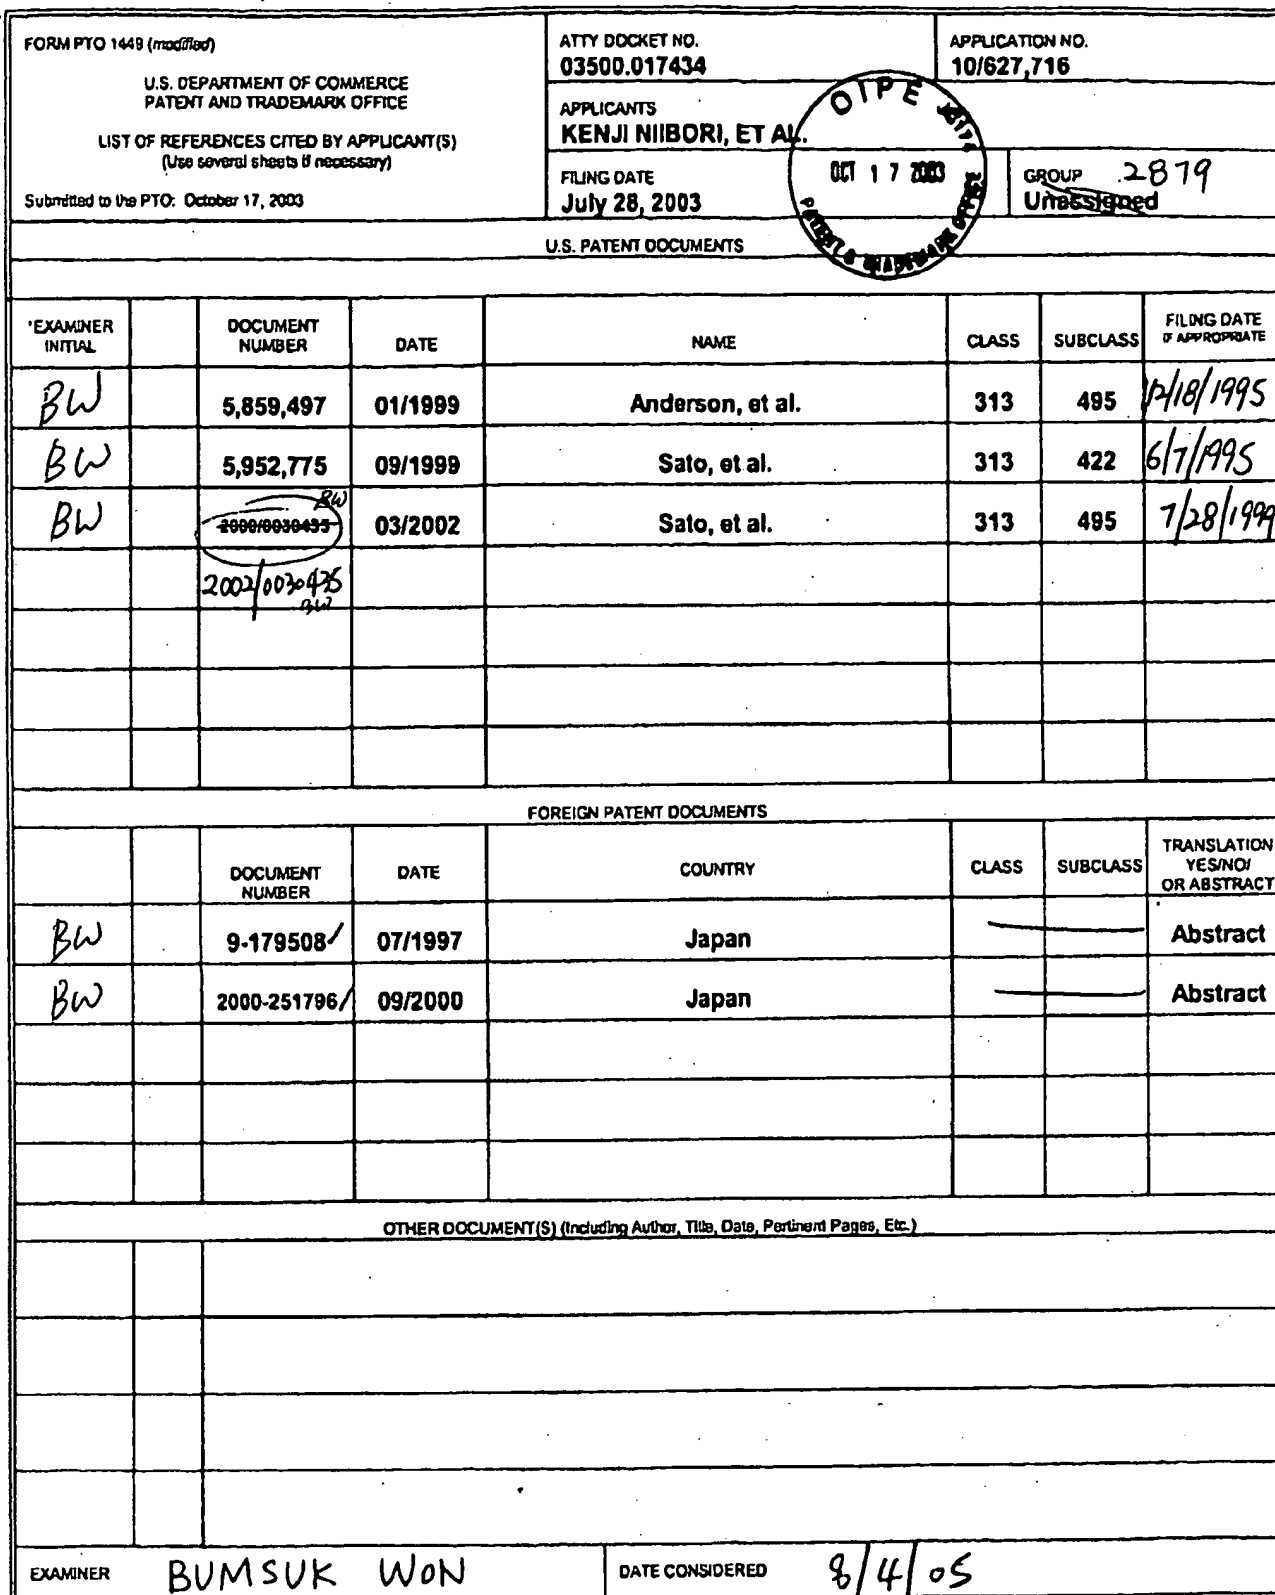 FORM PTO 1449 (modified)
U.S. DEPARTMENT OF COMMERCE
PATENT AND TRADEMARK OFFICE
LIST OF REFERENCES CITED BY APPLICANT(S)
(Use several sheets if necessary)
Submitted to the PTO: October 17, 2003
ATTY DOCKET NO.
03500.017434
APPLICATION NO.
10/627,716
APPLICANTS
KENJI NIIBORI, ET AL.
FILING DATE
July 28, 2003
GROUP 2879
Unassigned
OIPE
OCT 17 2003
PATENT & TRADEMARK OFFICE
U.S. PATENT DOCUMENTS
*EXAMINER INITIAL DOCUMENT NUMBER DATE NAME CLASS SUBCLASS FILING DATE IF APPROPRIATE
BW 5,859,497 01/1999 Anderson, et al. 313 495 12/18/1995
BW 5,952,775 09/1999 Sato, et al. 313 422 6/7/1995
BW 2000/0030435 BW 03/2002 Sato, et al. 313 495 7/28/1999
2002/0030435
BW
FOREIGN PATENT DOCUMENTS
DOCUMENT NUMBER DATE COUNTRY CLASS SUBCLASS TRANSLATION YES/NO/ OR ABSTRACT
BW 9-179508 07/1997 Japan Abstract
BW 2000-251796 09/2000 Japan Abstract
OTHER DOCUMENT(S) (Including Author, Title, Date, Pertinent Pages, Etc.)
EXAMINER BUMSUK WON DATE CONSIDERED 8/4/05